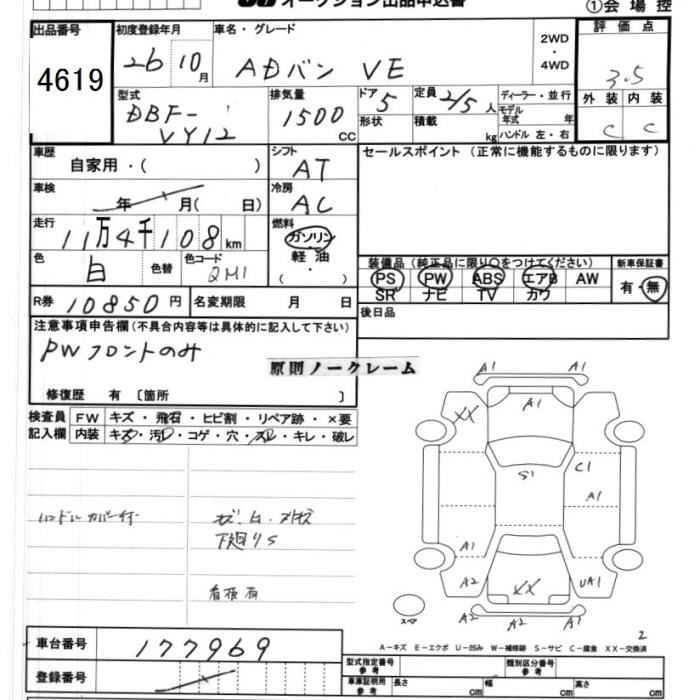 オークション出品申込書 ①会場控
出品番号 初度登録年月 車名・グレード 2WD・4WD 評価点
4619 26 10月 ADバン VE 3.5
型式 排気量 ドア 定員 ディーラー・並行 外装 内装
DBF-VY12 1500cc 5 2/5人 モデル年式 年 C C
形状 積載 kg ハンドル 左・右
車歴 自家用・( ) シフト AT セールスポイント (正常に機能するものに限ります)
車検 年 月( 日) 冷房 AC
走行 11万4千108km 燃料 ガソリン・軽油・
色 白 色替 色コード QM1 装備品 (純正品に限り○をつけてください) 新車保証書
PS PW ABS エアB AW 有・無
SR ナビ TV カワ
R券 10850円 名変期限 月 日 後日品
注意事項申告欄(不具合内容等は具体的に記入して下さい)
PWフロントのみ
原則ノークレーム
修復歴 有 〔箇所 〕
検査員 FW キズ・飛石・ヒビ割・リペア跡・×要
記入欄 内装 キズ・汚レ・コゲ・穴・スレ・キレ・破レ
A1 A1
XX A1
S1 C1
A1
ハンドルカバー付
下廻りS
A1
A2 XX UA1
A2 A2 A1
スペア
2
A-キズ E-エクボ U-凹み W-補修跡 S-サビ C-腐食 XX-交換済
車台番号 177969
登録番号
型式指定番号 参考 類別区分番号 参考
車庫証明用 参考 長さ cm 幅 cm 高さ cm